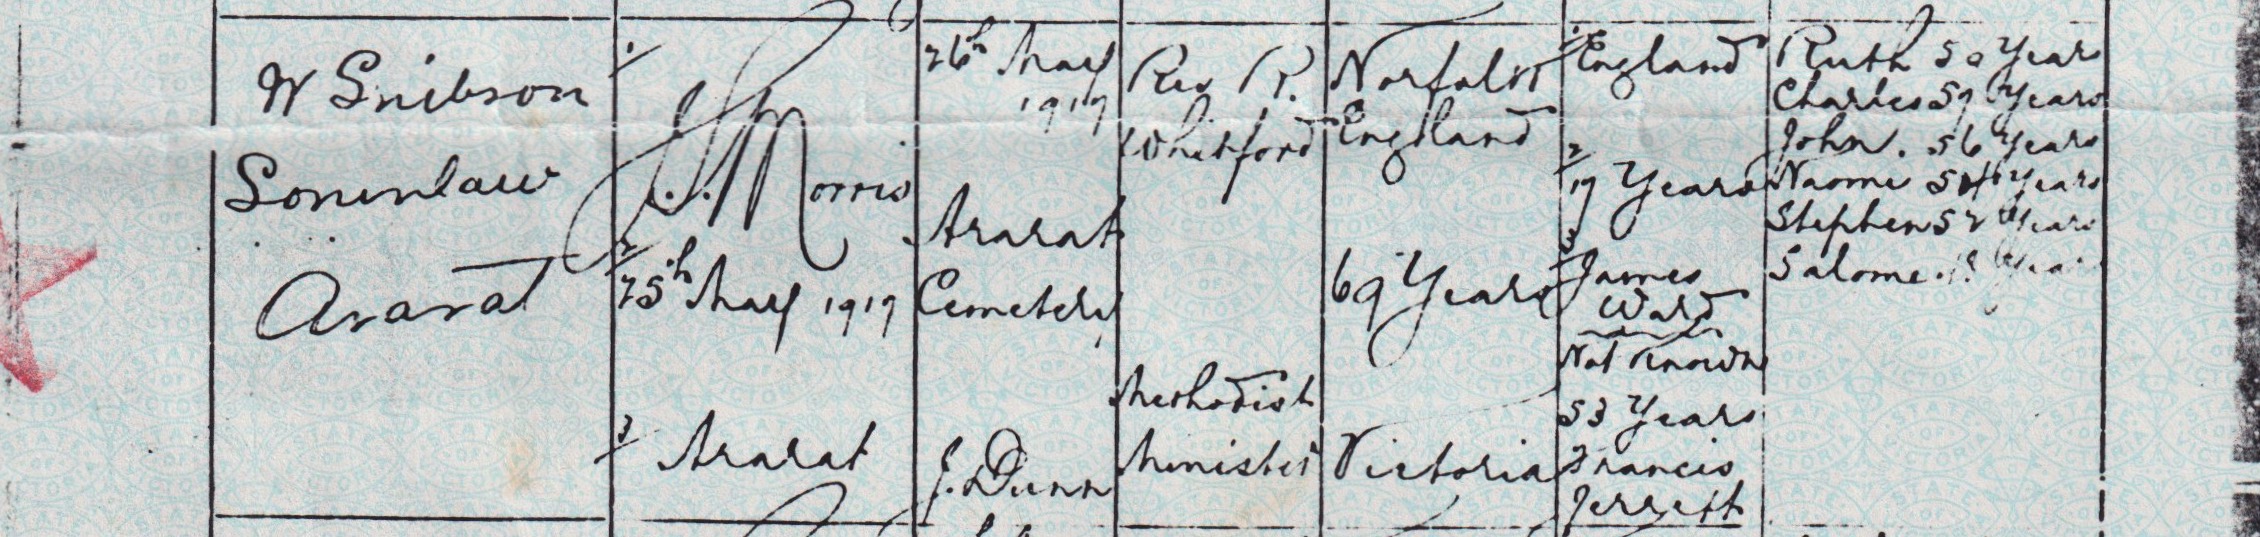 W Snibson
Soninlaw
Ararat
1/
J. S. Morris
2/
25th May 1919
3/
Ararat
26th May
1919
Ararat
Cemetery
J. Dunn
Rev R.
Whitford
Methodist
Minister
Norfolk
England
69 Years
Victoria
1/
England
2/
19 Years
3/
James
Ward
Not Known
53 Years
Francis
Jerrett
Ruth Years
Charles 57 Years
John. 56 Years
Naomi 54 Years
Stephen 52 Years
Salome Years